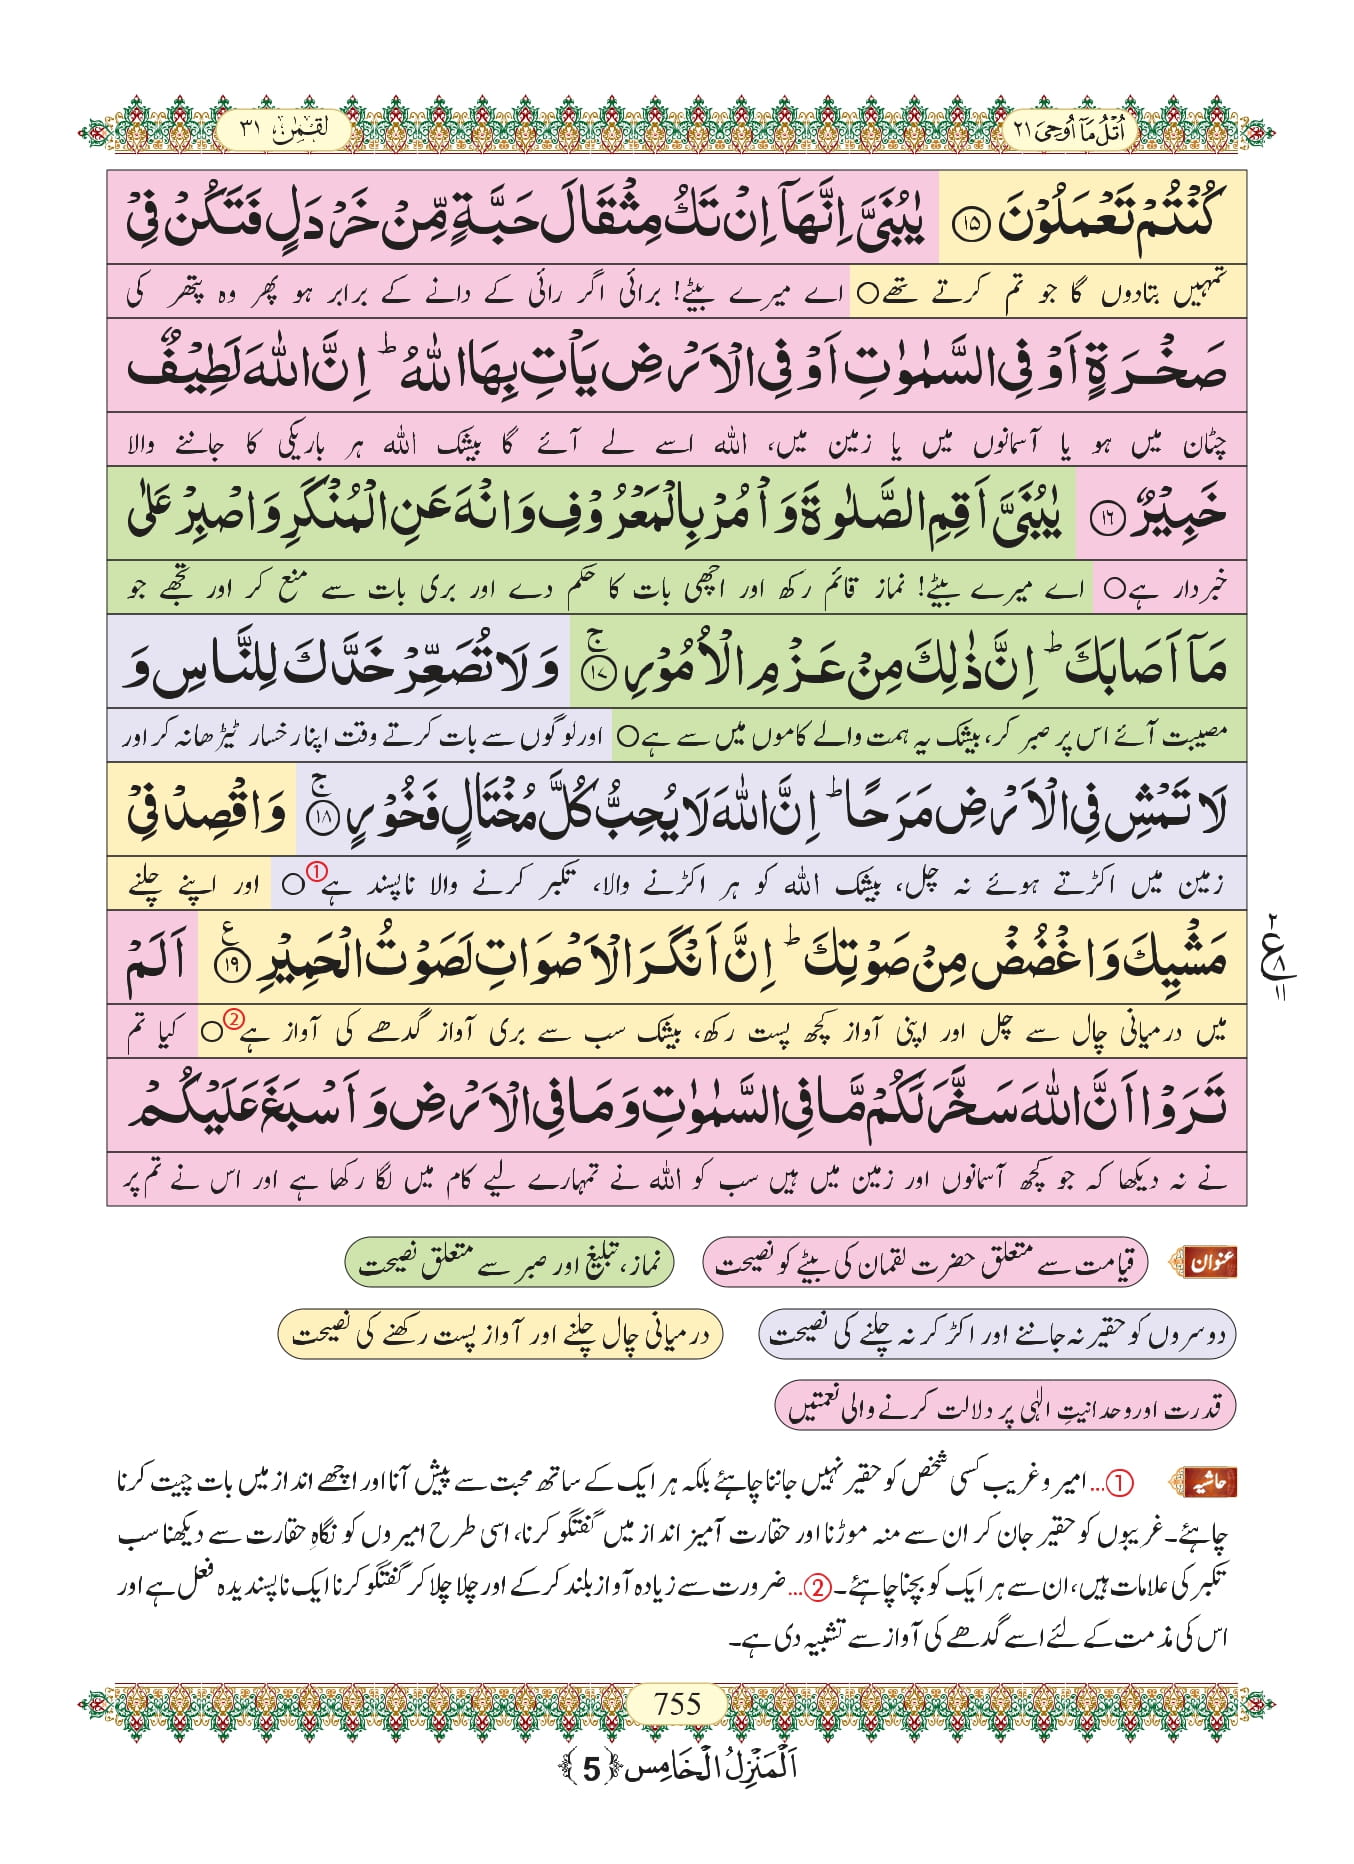 اُتْلُ مَاۤ اُوْحِیَ ۲۱
لقمٰن ۳۱
كُنْتُمْ تَعْمَلُوْنَ ﴿۱۵﴾ یٰبُنَیَّ اِنَّهَاۤ اِنْ تَكُ مِثْقَالَ حَبَّةٍ مِّنْ خَرْدَلٍ فَتَكُنْ فِیْ
تمہیں بتادوں گا جو تم کرتے تھے○ اے میرے بیٹے! برائی اگر رائی کے دانے کے برابر ہو پھر وہ پتھر کی
صَخْرَةٍ اَوْ فِی السَّمٰوٰتِ اَوْ فِی الْاَرْضِ یَاْتِ بِهَا اللّٰهُ ؕ اِنَّ اللّٰهَ لَطِیْفٌ
چٹان میں ہو یا آسمانوں میں یا زمین میں، اللہ اسے لے آئے گا بیشک اللہ ہر باریکی کا جاننے والا
خَبِیْرٌ ﴿۱۶﴾ یٰبُنَیَّ اَقِمِ الصَّلٰوةَ وَ اْمُرْ بِالْمَعْرُوْفِ وَ انْهَ عَنِ الْمُنْكَرِ وَ اصْبِرْ عَلٰى
خبردار ہے○ اے میرے بیٹے! نماز قائم رکھ اور اچھی بات کا حکم دے اور بری بات سے منع کر اور تجھے جو
مَاۤ اَصَابَكَ ؕ اِنَّ ذٰلِكَ مِنْ عَزْمِ الْاُمُوْرِ ۚ﴿۱۷﴾ وَ لَا تُصَعِّرْ خَدَّكَ لِلنَّاسِ وَ
مصیبت آئے اس پر صبر کر، بیشک یہ ہمت والے کاموں میں سے ہے○ اور لوگوں سے بات کرتے وقت اپنا رخسار ٹیڑھا نہ کر اور
لَا تَمْشِ فِی الْاَرْضِ مَرَحًا ؕ اِنَّ اللّٰهَ لَا یُحِبُّ كُلَّ مُخْتَالٍ فَخُوْرٍ ۚ﴿۱۸﴾ وَ اقْصِدْ فِیْ
زمین میں اکڑتے ہوئے نہ چل، بیشک اللہ کو ہر اکڑنے والا، تکبر کرنے والا ناپسند ہے①○ اور اپنے چلنے
مَشْیِكَ وَ اغْضُضْ مِنْ صَوْتِكَ ؕ اِنَّ اَنْكَرَ الْاَصْوَاتِ لَصَوْتُ الْحَمِیْرِ ﴿۱۹﴾ع اَلَمْ
۲ ع ۸ ۱۱
میں درمیانی چال سے چل اور اپنی آواز کچھ پست رکھ، بیشک سب سے بری آواز گدھے کی آواز ہے②○ کیا تم
تَرَوْا اَنَّ اللّٰهَ سَخَّرَ لَكُمْ مَّا فِی السَّمٰوٰتِ وَ مَا فِی الْاَرْضِ وَ اَسْبَغَ عَلَیْكُمْ
نے نہ دیکھا کہ جو کچھ آسمانوں اور زمین میں ہیں سب کو اللہ نے تمہارے لیے کام میں لگا رکھا ہے اور اس نے تم پر
عنوان قیامت سے متعلق حضرت لقمان کی بیٹے کو نصیحت نماز، تبلیغ اور صبر سے متعلق نصیحت
دوسروں کو حقیر نہ جاننے اور اکڑ کر نہ چلنے کی نصیحت درمیانی چال چلنے اور آواز پست رکھنے کی نصیحت
قدرت اور وحدانیتِ الٰہی پر دلالت کرنے والی نعمتیں
حاشیہ ①... امیر و غریب کسی شخص کو حقیر نہیں جاننا چاہئے بلکہ ہر ایک کے ساتھ محبت سے پیش آنا اور اچھے انداز میں بات چیت کرنا
چاہئے۔ غریبوں کو حقیر جان کر ان سے منہ موڑنا اور حقارت آمیز انداز میں گفتگو کرنا، اسی طرح امیروں کو نگاہِ حقارت سے دیکھنا سب
تکبر کی علامات ہیں، ان سے ہر ایک کو بچنا چاہئے۔ ②... ضرورت سے زیادہ آواز بلند کر کے اور چلا چلا کر گفتگو کرنا ایک ناپسندیدہ فعل ہے اور
اس کی مذمت کے لئے اسے گدھے کی آواز سے تشبیہ دی ہے۔
755
اَلْمَنْزِلُ الْخَامِس ﴿5﴾